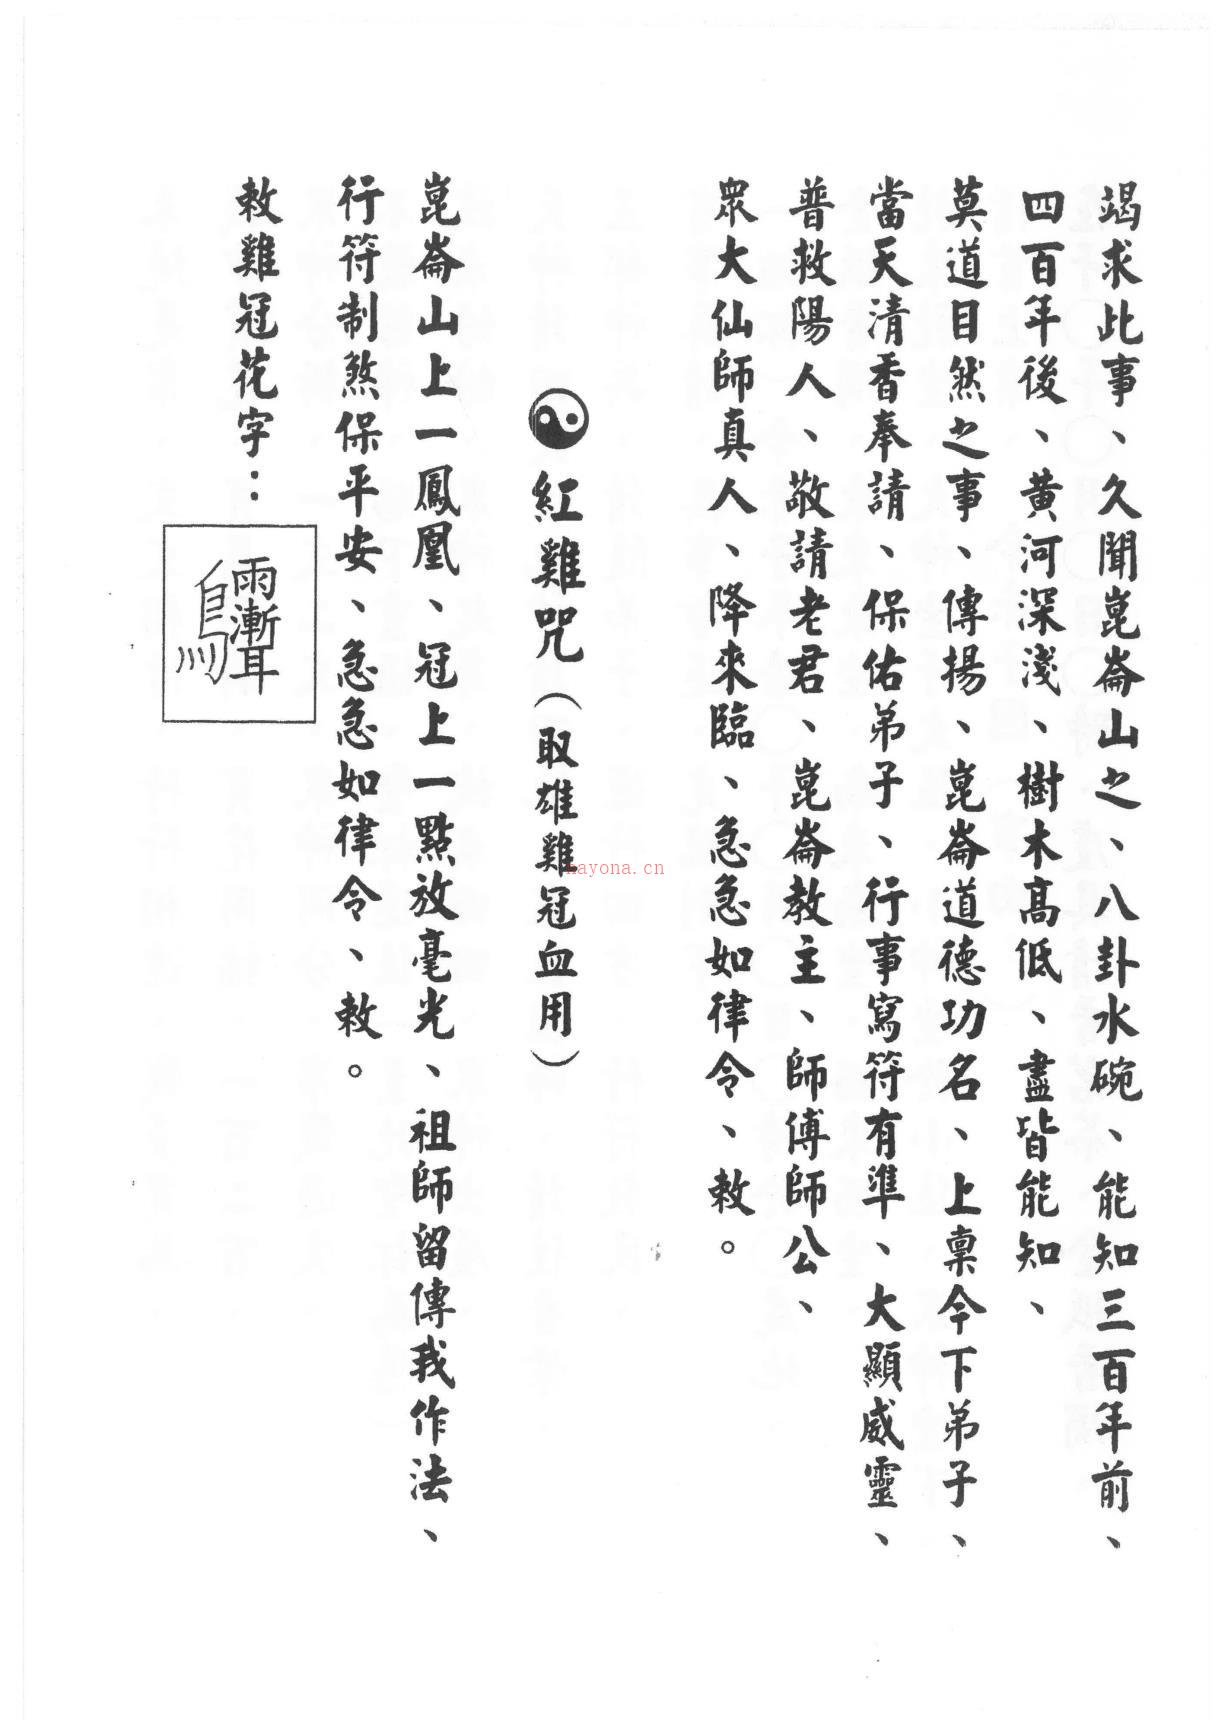 竭求此事、久聞崑崙山之、八卦水碗、能知三百年前、
四百年後、黄河深淺、樹木高低、盡皆能知、
莫道目然之事、傳揚、崑崙道德功名、上稟今下弟子、
當天清香奉請、保佑弟子、行事寫符有準、大顯威靈、
普救陽人、敬請老君、崑崙教主、師傅師公、
眾大仙師真人、降來臨、急急如律令、敕。
☯紅雞咒（取雄雞冠血用）
崑崙山上一鳳凰、冠上一點放毫光、祖師留傳我作法、
行符制煞保平安、急急如律令、敕。
敕雞冠花字：
雨漸耳
nayona.cn